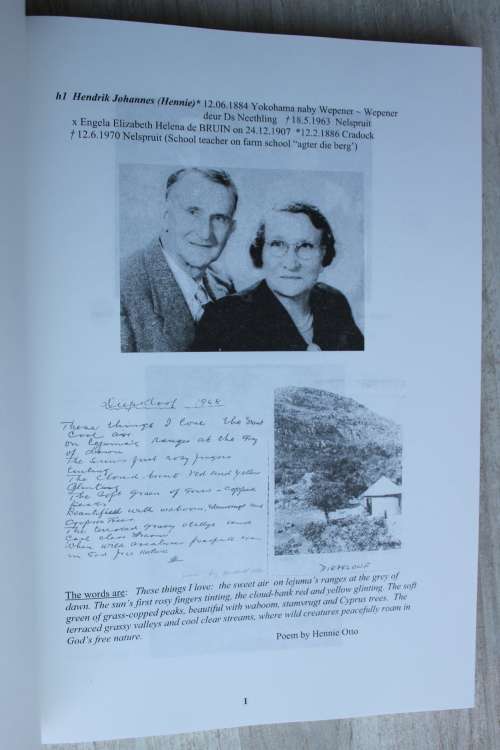 h1 Hendrik Johannes (Hennie)* 12.06.1884 Yokohama naby Wepener ~ Wepener
deur Ds Neethling † 18.5.1963 Nelspruit
x Engela Elizabeth Helena de BRUIN on 24.12.1907 *12.2.1886 Cradock
† 12.6.1970 Nelspruit (School teacher on farm school "agter die berg')
Diepkloof 1948
These things I love The Sweet
Cool air
on Lejuma's ranges at the Grey
of Dawn
The Suns first rosy fingers
tinting
The Cloud bank Red and Yellow
Glinting
The Soft Green of Grass-Copped
Peaks
Beautified with waboom, stamvrugt and
Cyprus Trees
The terraced grassy valleys and
Cool clear streams
Where wild creatures peacefull roam
in God free nature
DIEPKLOOF
The words are: These things I love: the sweet air on lejuma's ranges at the grey of
dawn. The sun's first rosy fingers tinting, the cloud-bank red and yellow glinting. The soft
green of grass-copped peaks, beautiful with waboom, stamvrugt and Cyprus trees. The
terraced grassy valleys and cool clear streams, where wild creatures peacefully roam in
God's free nature.
Poem by Hennie Otto
1